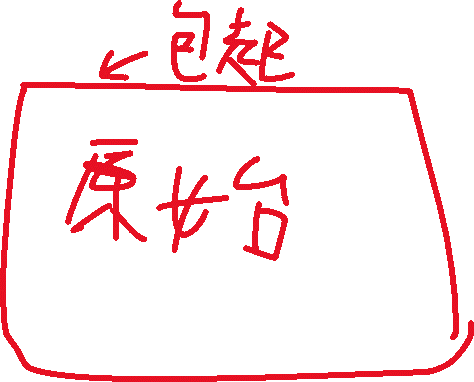 包起
原始